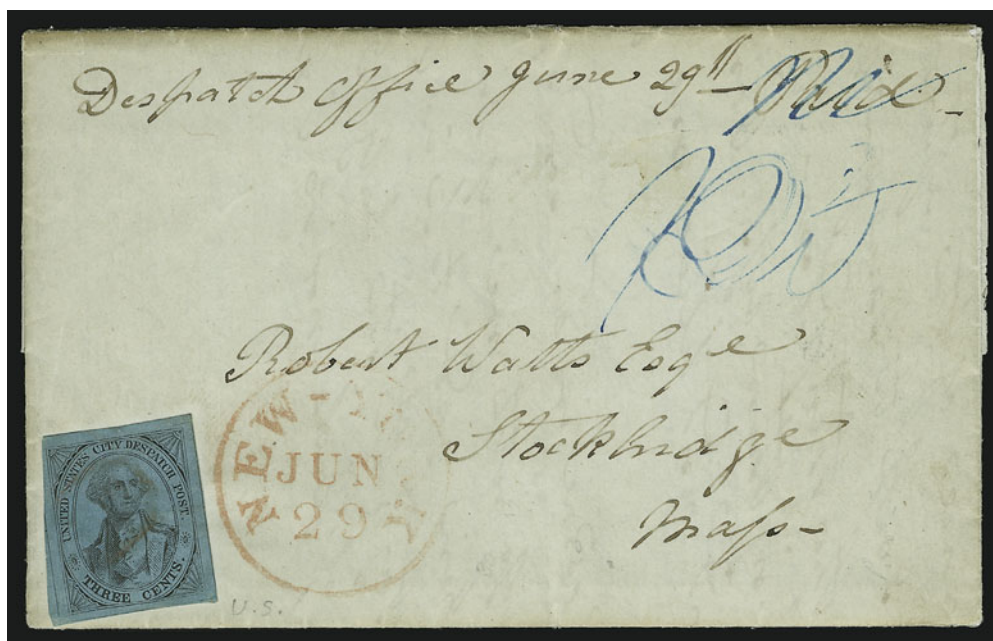 Despatch Office June 29th Paid
Robert Watts Esqe
Stockbridge
Mass
NEW-
JUN
29
UNITED STATES CITY DESPATCH POST.
THREE CENTS.
U.S.